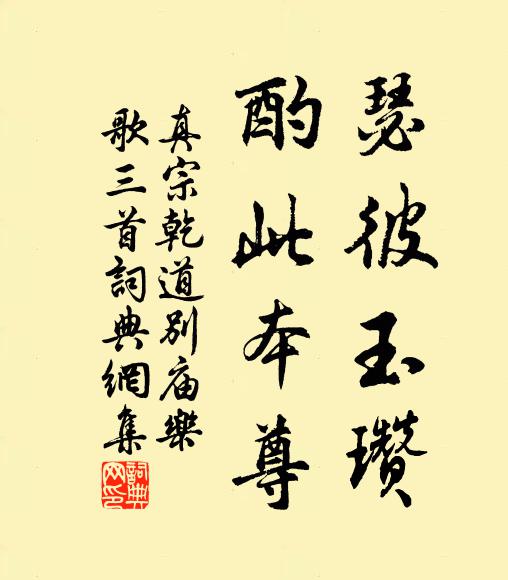 瑟彼玉瓚
酌此本尊
真宗乾道別庙樂
歌三首詞典網集
詞典網印